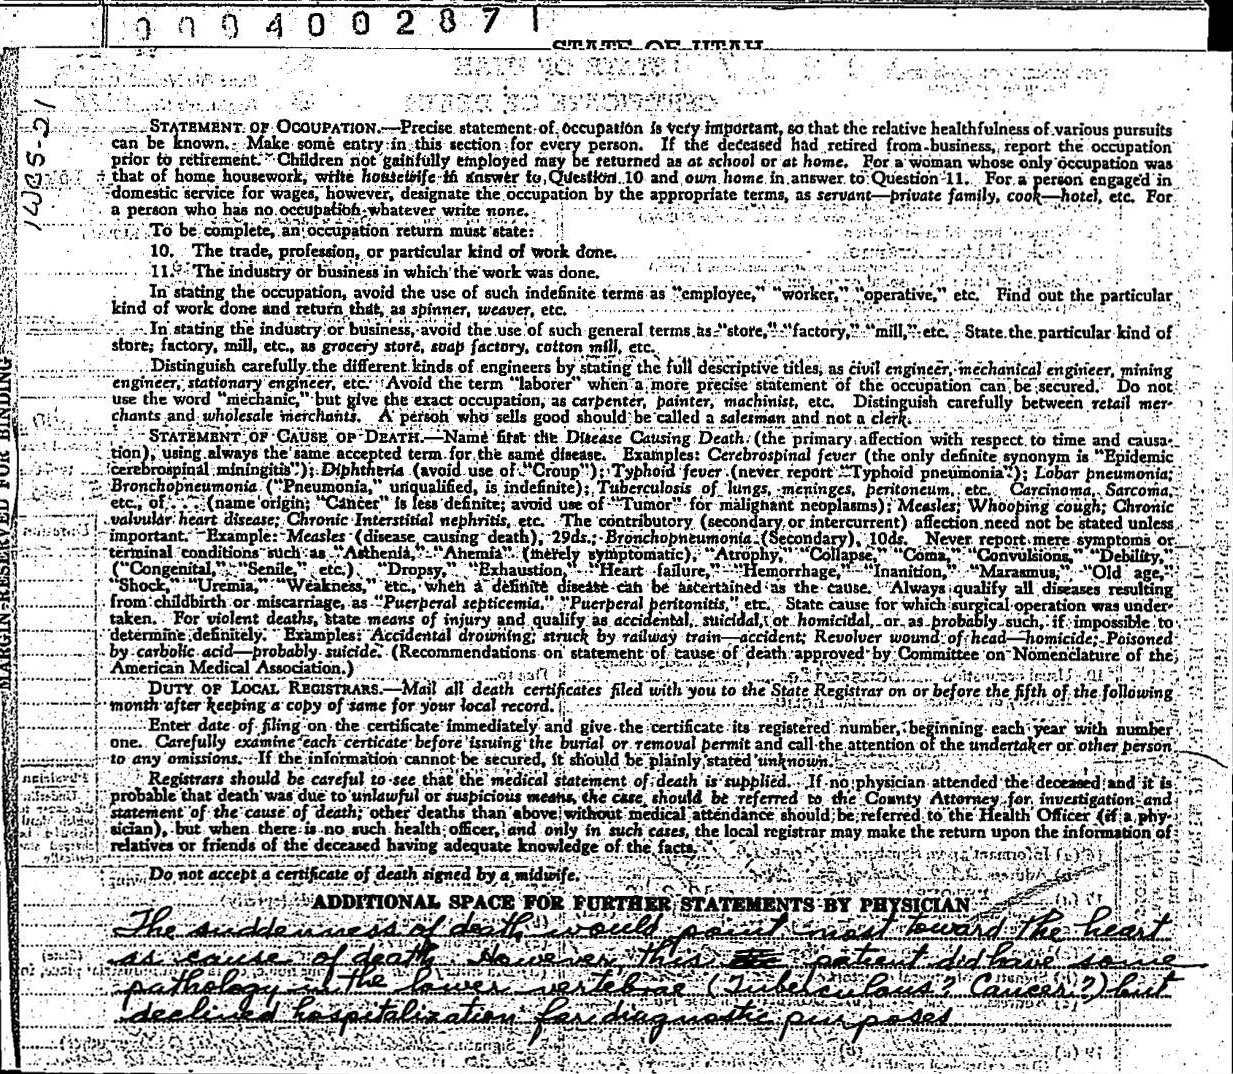 000400287
STATE OF UTAH
STATEMENT OF OCCUPATION.—Precise statement of occupation is very important, so that the relative healthfulness of various pursuits
can be known. Make some entry in this section for every person. If the deceased had retired from business, report the occupation
prior to retirement. Children not gainfully employed may be returned as at school or at home. For a woman whose only occupation was
that of home housework, write housewife in answer to Question 10 and own home in answer to Question 11. For a person engaged in
domestic service for wages, however, designate the occupation by the appropriate terms, as servant—private family, cook—hotel, etc. For
a person who has no occupation whatever write none.
To be complete, an occupation return must state:
10. The trade, profession, or particular kind of work done.
11. The industry or business in which the work was done.
In stating the occupation, avoid the use of such indefinite terms as "employee," "worker," "operative," etc. Find out the particular
kind of work done and return that, as spinner, weaver, etc.
In stating the industry or business, avoid the use of such general terms as "store," "factory," "mill," etc. State the particular kind of
store, factory, mill, etc., as grocery store, soap factory, cotton mill, etc.
Distinguish carefully the different kinds of engineers by stating the full descriptive titles, as civil engineer, mechanical engineer, mining
engineer, stationary engineer, etc. Avoid the term "laborer" when a more precise statement of the occupation can be secured. Do not
use the word "mechanic," but give the exact occupation, as carpenter, painter, machinist, etc. Distinguish carefully between retail mer-
chants and wholesale merchants. A person who sells good should be called a salesman and not a clerk.
STATEMENT OF CAUSE OF DEATH.—Name first the Disease Causing Death (the primary affection with respect to time and causa-
tion), using always the same accepted term for the same disease. Examples: Cerebrospinal fever (the only definite synonym is "Epidemic
cerebrospinal miningitis"); Diphtheria (avoid use of "Croup"); Typhoid fever (never report "Typhoid pneumonia"); Lobar pneumonia;
Bronchopneumonia ("Pneumonia," unqualified, is indefinite); Tuberculosis of lungs, meninges, peritoneum, etc. Carcinoma, Sarcoma,
etc., of . . . (name origin; "Cancer" is less definite; avoid use of "Tumor" for malignant neoplasms); Measles; Whooping cough; Chronic
valvular heart disease; Chronic Interstitial nephritis, etc. The contributory (secondary or intercurrent) affection need not be stated unless
important. Example: Measles (disease causing death), 29ds.; Bronchopneumonia (Secondary), 10ds. Never report mere symptoms or
terminal conditions such as "Asthenia," "Anemia" (merely symptomatic), "Atrophy," "Collapse," "Coma," "Convulsions," "Debility,"
("Congenital," "Senile," etc.) , "Dropsy," "Exhaustion," "Heart failure," "Hemorrhage," "Inanition," "Marasmus," "Old age,"
"Shock," "Uremia," "Weakness," etc., when a definite disease can be ascertained as the cause. Always qualify all diseases resulting
from childbirth or miscarriage, as "Puerperal septicemia," "Puerperal peritonitis," etc. State cause for which surgical operation was under-
taken. For violent deaths, state means of injury and qualify as accidental, suicidal, or homicidal, or as probably such, if impossible to
determine definitely. Examples: Accidental drowning; struck by railway train—accident; Revolver wound of head—homicide; Poisoned
by carbolic acid—probably suicide. (Recommendations on statement of cause of death approved by Committee on Nomenclature of the
American Medical Association.)
DUTY OF LOCAL REGISTRARS.—Mail all death certificates filed with you to the State Registrar on or before the fifth of the following
month after keeping a copy of same for your local record.
Enter date of filing on the certificate immediately and give the certificate its registered number, beginning each year with number
one. Carefully examine each certicate before issuing the burial or removal permit and call the attention of the undertaker or other person
to any omissions. If the information cannot be secured, it should be plainly stated unknown.
Registrars should be careful to see that the medical statement of death is supplied. If no physician attended the deceased and it is
probable that death was due to unlawful or suspicious means, the case should be referred to the County Attorney for investigation and
statement of the cause of death; other deaths than above without medical attendance should be referred to the Health Officer (if a phy-
sician), but when there is no such health officer, and only in such cases, the local registrar may make the return upon the information of
relatives or friends of the deceased having adequate knowledge of the facts.
Do not accept a certificate of death signed by a midwife.
ADDITIONAL SPACE FOR FURTHER STATEMENTS BY PHYSICIAN
The suddenness of death would point most toward the heart
as cause of death. However, this patient did have some
pathology in the lower vertebrae (Tuberculous? Cancer?) but
declined hospitalization for diagnostic purposes
MARGIN-RESERVED FOR BINDING